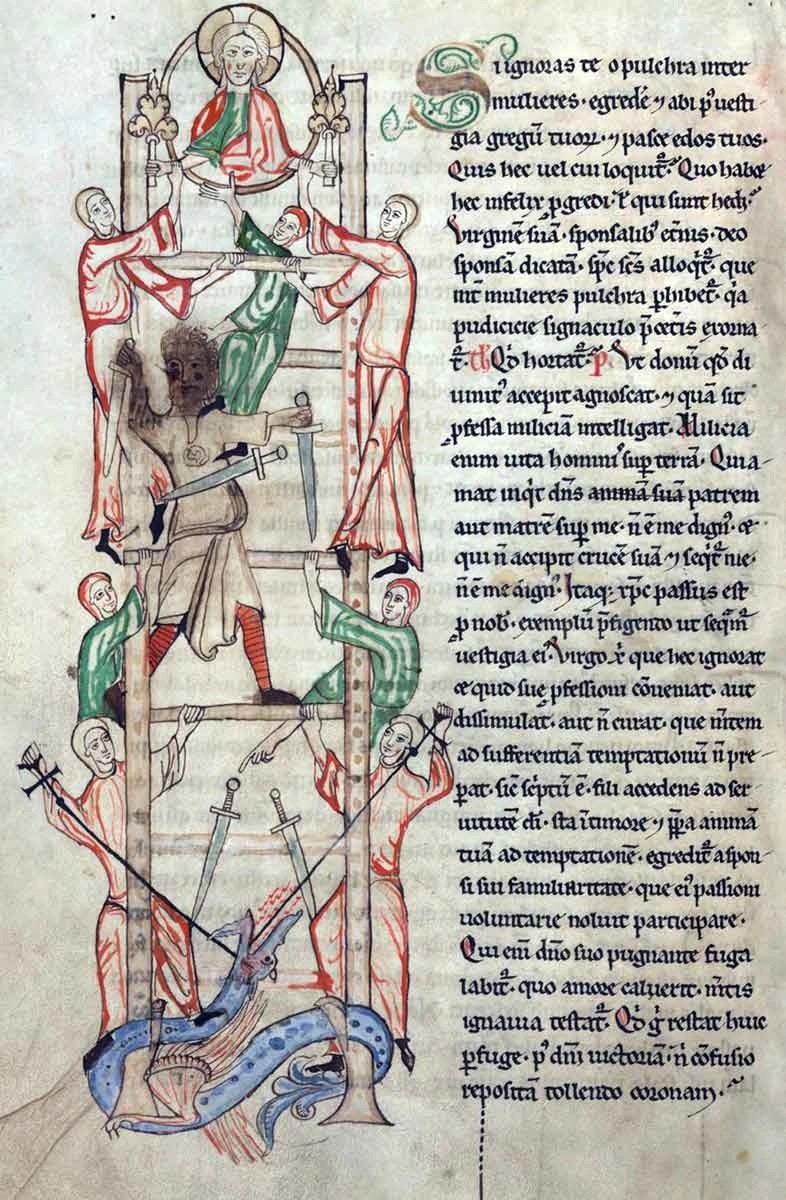 Si ignoras te o pulchra inter
mulieres · egredẽ ⁊ abi p᷒ uesti-
gia gregũ tuoꝝ · ⁊ pasce edos tuos ·
Quis hec uel cui loquit᷑ · Quo habet
hec infelix ꝓgredi · ł qui sunt hedi ·
Virginẽ suã · sponsalib᷒ et̃nis · deo
sponsã dicatã · sp̃c sc̃s alloqt᷑ · que
int̃ mulieres pulchra phibet᷑ · q̃a
pudicicie signaculo p̃ cet̃is exorna
t᷑ · Th Qd̃ hortat᷑ · P Vt donũ qd̃ di
uinit᷒ accepit agnoscat · ⁊ quã sit
ꝓfessa miliciã intelligat · Milicia
enim uita homini᷒ suꝑ terrã · Qui a-
mat inqt̃ dñs animã suã patrem
aut matrẽ suꝑ me · ñ ẽ me dign᷒ · et
qui ñ accipit crucẽ suã ⁊ seqt᷑ me ·
ñ ẽ me dign᷒ · Itaq; xp̃c passus est
ꝓ nob᷒ · exemplũ p̃figendo ut seqm̃
uestigia ei᷒ · Virgo g̊ que hec ignorat
et quid suę ꝓfessioni cõueniat · aut
dissimulat · aut ñ curat · que m̃tem
ad sufferentiã temptationũ ñ pre-
parat · sic̃ sc̃ptũ ẽ · fili accedens ad ser-
uitutẽ di᷒ · sta ĩ timore · ⁊ p̃para animã
tuã ad temptationẽ · egredit᷑ a spon-
si sui familiaritate · que ei᷒ passioni
uoluntarie noluit participare ·
Qui em̃ dño suo pugnante fuga
labit᷑ · quo amore caluerit · m̃tis
ignauia testat᷑ · Qd̃ g̊ restat huic
ꝑfuge · p᷒ dñi uictoriã · ñ cõfusio
repositã tollendo coronam ·